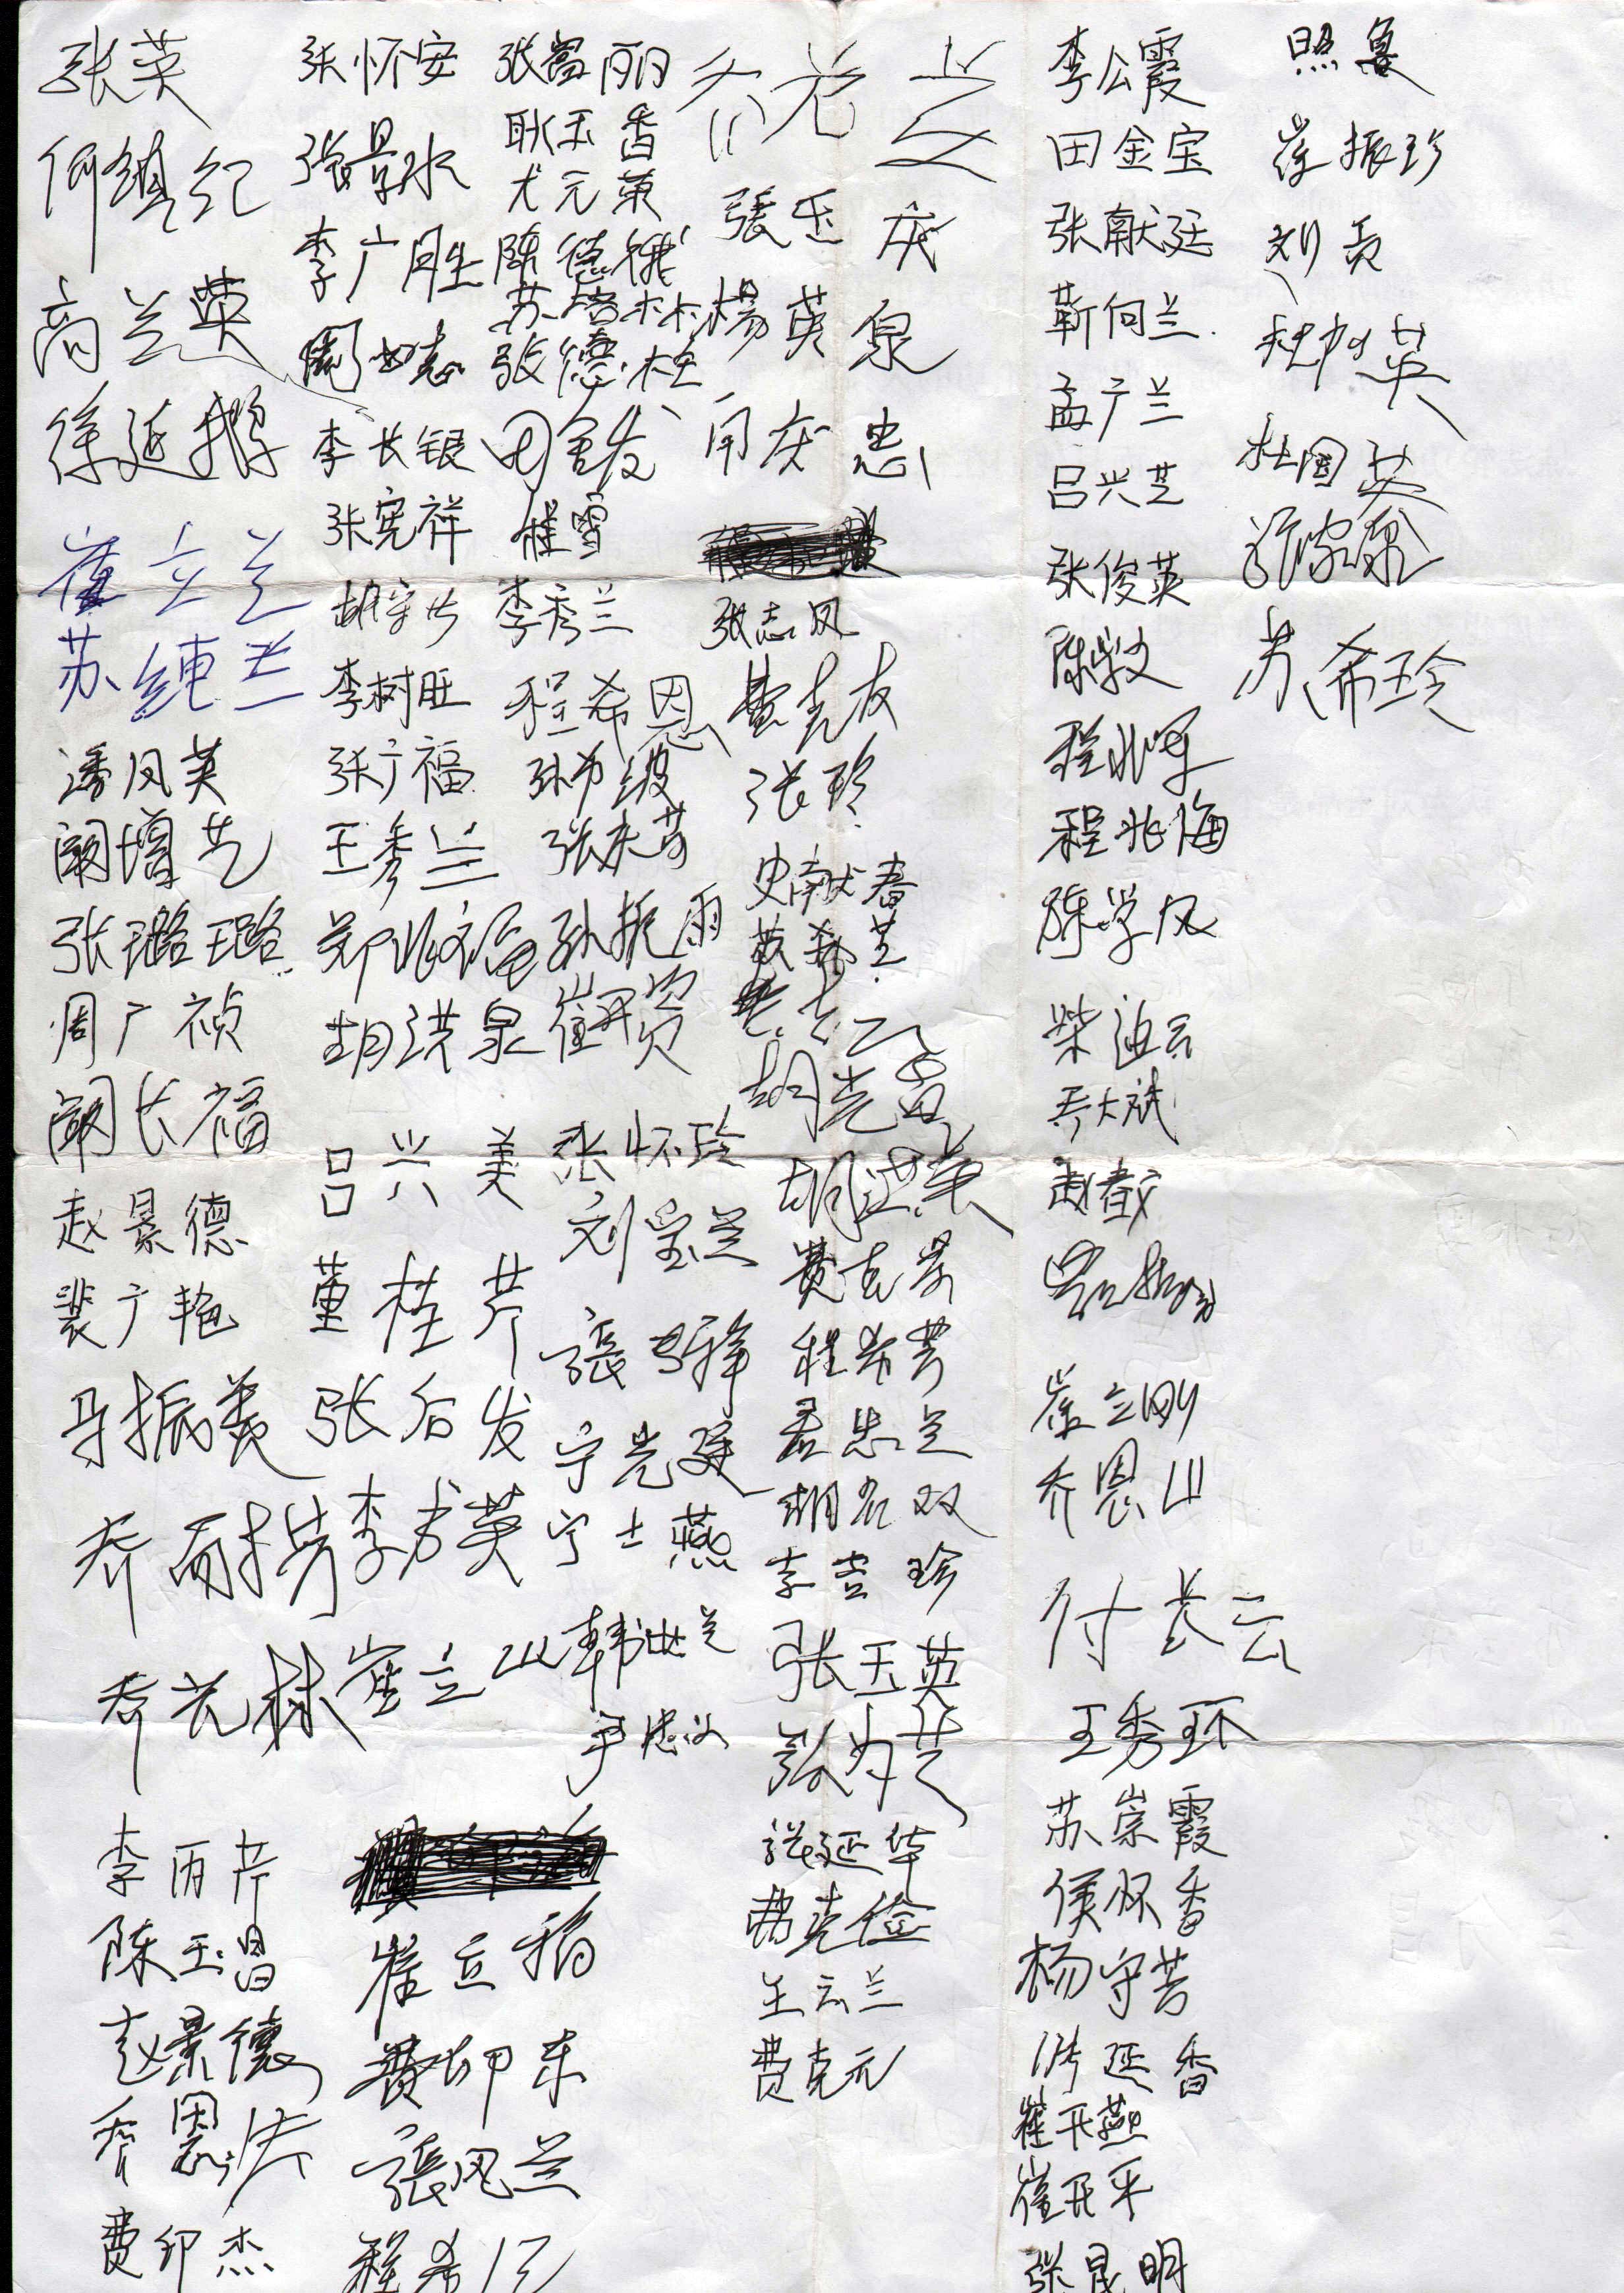 张英
何镇纪
高兰英
徐延
崔立兰
苏纯兰
潘凤英
阚增芝
张璐璐
周广祯
阚长福
赵景德
裴广艳
马振美
乔丙芹
乔元林
李丙芹
陈玉昌
赵景德
乔恩法
费印杰
张怀安
张景水
李广胜
李长银
张宪祥
胡守芳
李树旺
张广福
王秀兰
郑兆福
胡洪泉
吕兴美
董桂芹
张后发
李书英
崔立山
崔立稳
费印东
張凤兰
程希
张富丽
耿玉香
尤元英
陈德银
苏培林
张德柱
田金发
崔雪
李秀兰
程希恩
孙希级
张庆芳
孙振雨
崔开资
张怀玲
刘宝兰
宁光廷
宁士燕
韩世兰
尹忠义
乔元芝
張玉庆
楊英泉
庆忠
张志凤
费克友
张玲
史献春
胡克富
胡洪英
费克芳
程希芳
孟忠兰
胡名双
李吉珍
张玉英
张为芝
张延华
费克俭
王云兰
费克元
李公霞
田金宝
张献廷
靳何兰
孟广兰
吕兴芝
张俊英
陈学文
程兆军
程兆海
陈学风
柴迪云
乔大斌
崔立刚
乔恩山
付长云
王秀环
苏崇霞
侯怀香
杨守芳
延香
崔开燕
崔开平
张晟明
照鲁
崔振珍
刘贡
程如英
杜同英
苏希玲